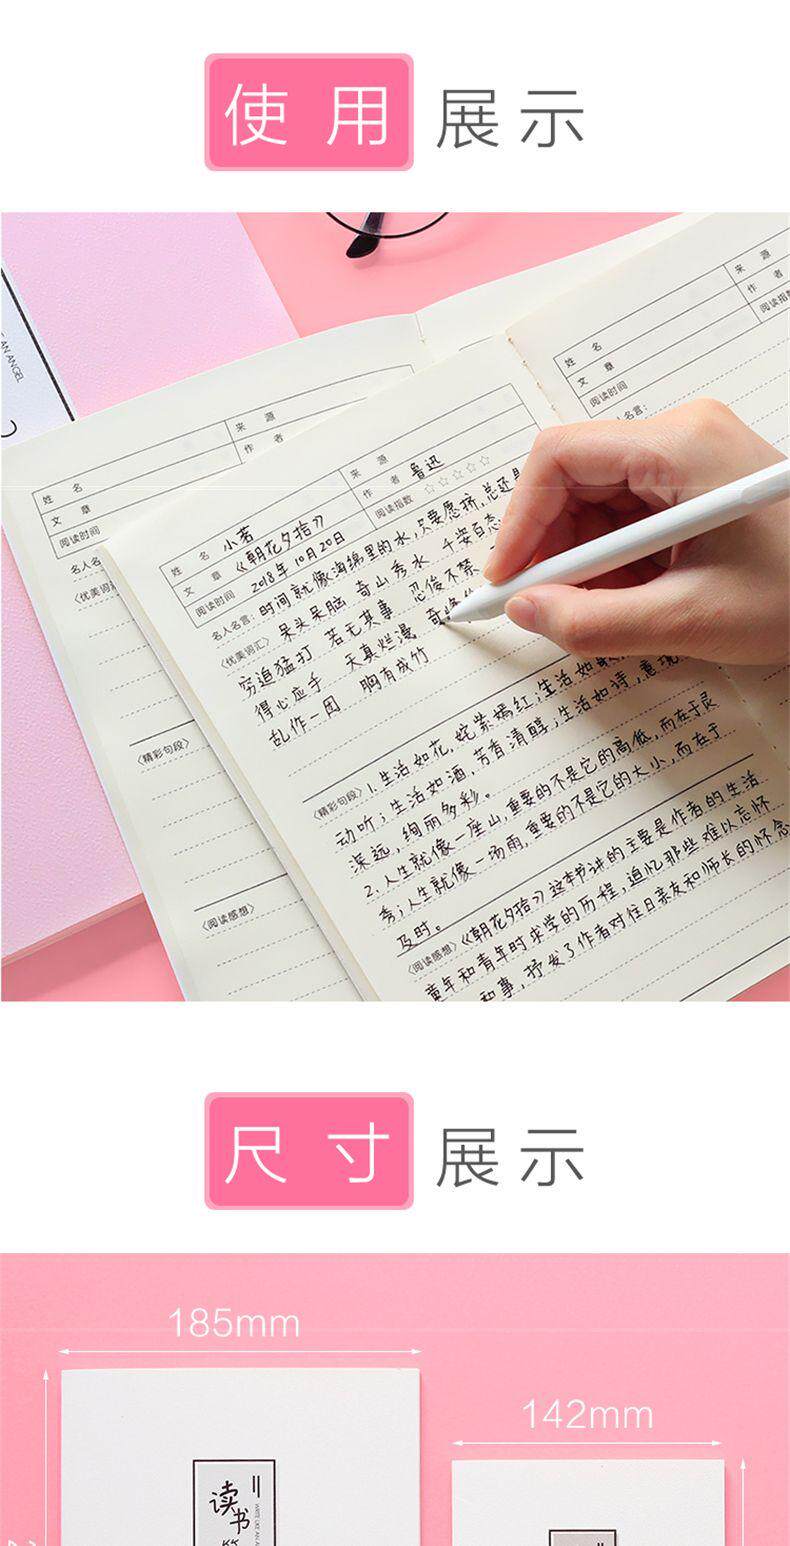 使用展示
AN ANGEL
姓名
文章
阅读时间
来源
作者
名人名
〈优美词
〈精彩句段〉
〈阅读感想〉
姓名
来源
文章
作者
阅读时间
阅读指数
名言:
姓名 小若
来源
文章 《朝花夕拾》
作者 鲁迅
阅读时间 2018年10月20日
阅读指数 ☆☆☆☆☆
名人名言: 时间就像海绵里的水,只要愿挤,总还是
〈优美词汇〉 呆头呆脑 奇山秀水 千姿百态
穷追猛打 若无其事 忍俊不禁
得心应手 天真烂漫 奇峰
乱作一团 胸有成竹
〈精彩句段〉 1.生活如花,姹紫嫣红;生活如
动听;生活如酒,芳香清醇;生活如诗,意境
深远,绚丽多彩。
2.人生就像一座山,重要的不是它的高低,而在于灵
秀;人生就像一场雨,重要的不是它的大小,而在于
及时。
〈阅读感想〉 《朝花夕拾》这本书讲的主要是作者的生活
童年和青年时求学的历程,追忆那些难以忘怀
和事,抒发了作者对往日亲友和师长的怀念
尺寸展示
185mm
142mm
读书
WRITE LIKE AN A